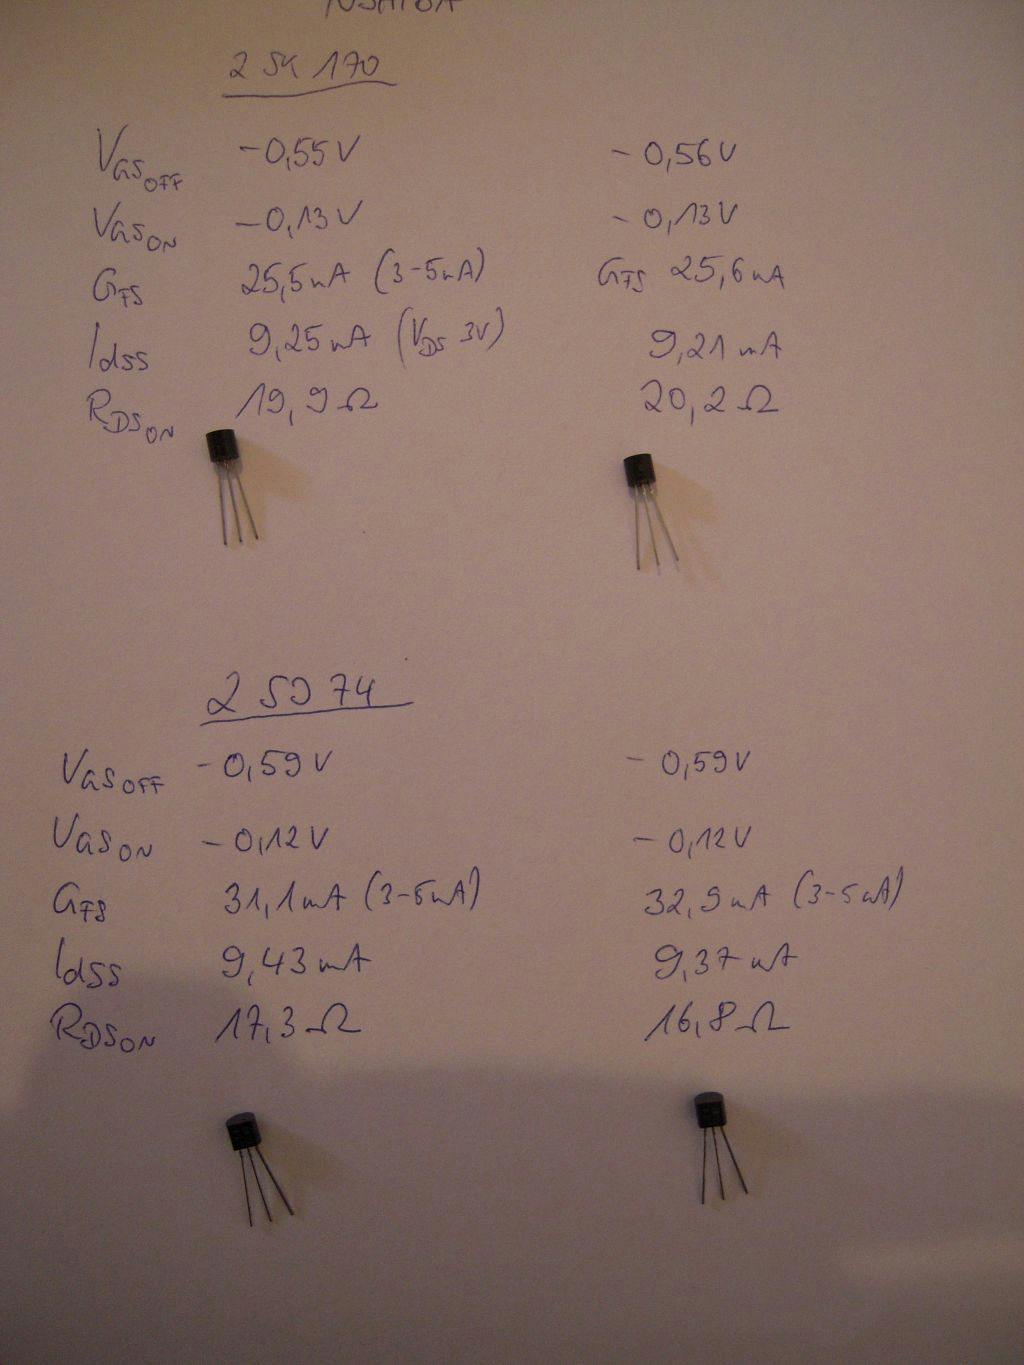 2SK170
VGSOFF -0,55V -0,56V
VGSON -0,13V -0,13V
GFS 25,5mA (3-5mA) GFS 25,6mA
Idss 9,25mA (VDS 3V) 9,21mA
RDSON 19,9Ω 20,2Ω
2SJ74
VGSOFF -0,59V -0,59V
VGSON -0,12V -0,12V
GFS 31,1mA (3-5mA) 32,9mA (3-5mA)
Idss 9,43mA 9,37mA
RDSON 17,3Ω 16,8Ω